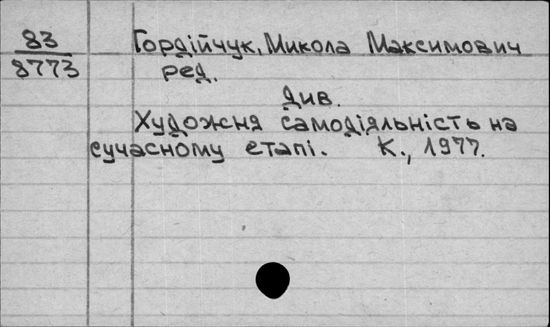 83 Гордійчук, Микола Максимович
8773 ред.
див.
Художня самодіяльність на
сучасному етапі. К., 1977.